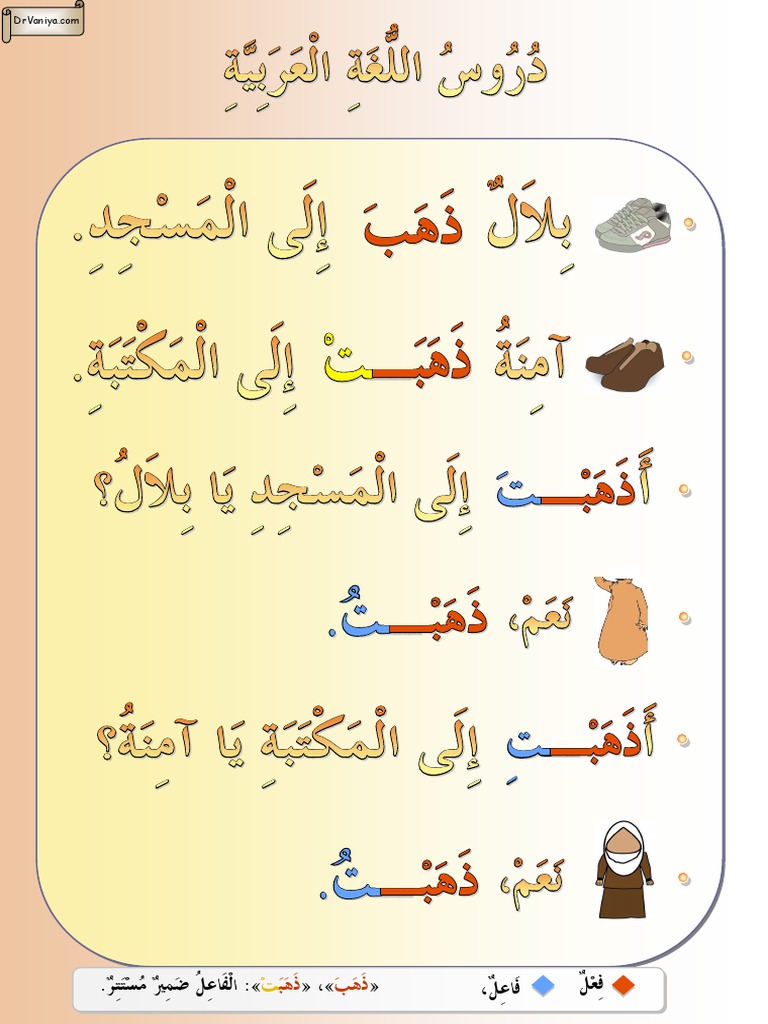 DrVaniya.com
دُرُوسُ اللُّغَةِ الْعَرَبِيَّةِ
بِلاَلٌ ذَهَبَ إِلَى الْمَسْجِدِ.
آمِنَةُ ذَهَبَــتْ إِلَى الْمَكْتَبَةِ.
أَذَهَبْــتَ إِلَى الْمَسْجِدِ يَا بِلاَلُ؟
نَعَمْ، ذَهَبْــتُ.
أَذَهَبْــتِ إِلَى الْمَكْتَبَةِ يَا آمِنَةُ؟
نَعَمْ، ذَهَبْــتُ.
فِعْلٌ فَاعِلٌ، «ذَهَبَ»، «ذَهَبَتْ»: الْفَاعِلُ ضَمِيرٌ مُسْتَتِرٌ.